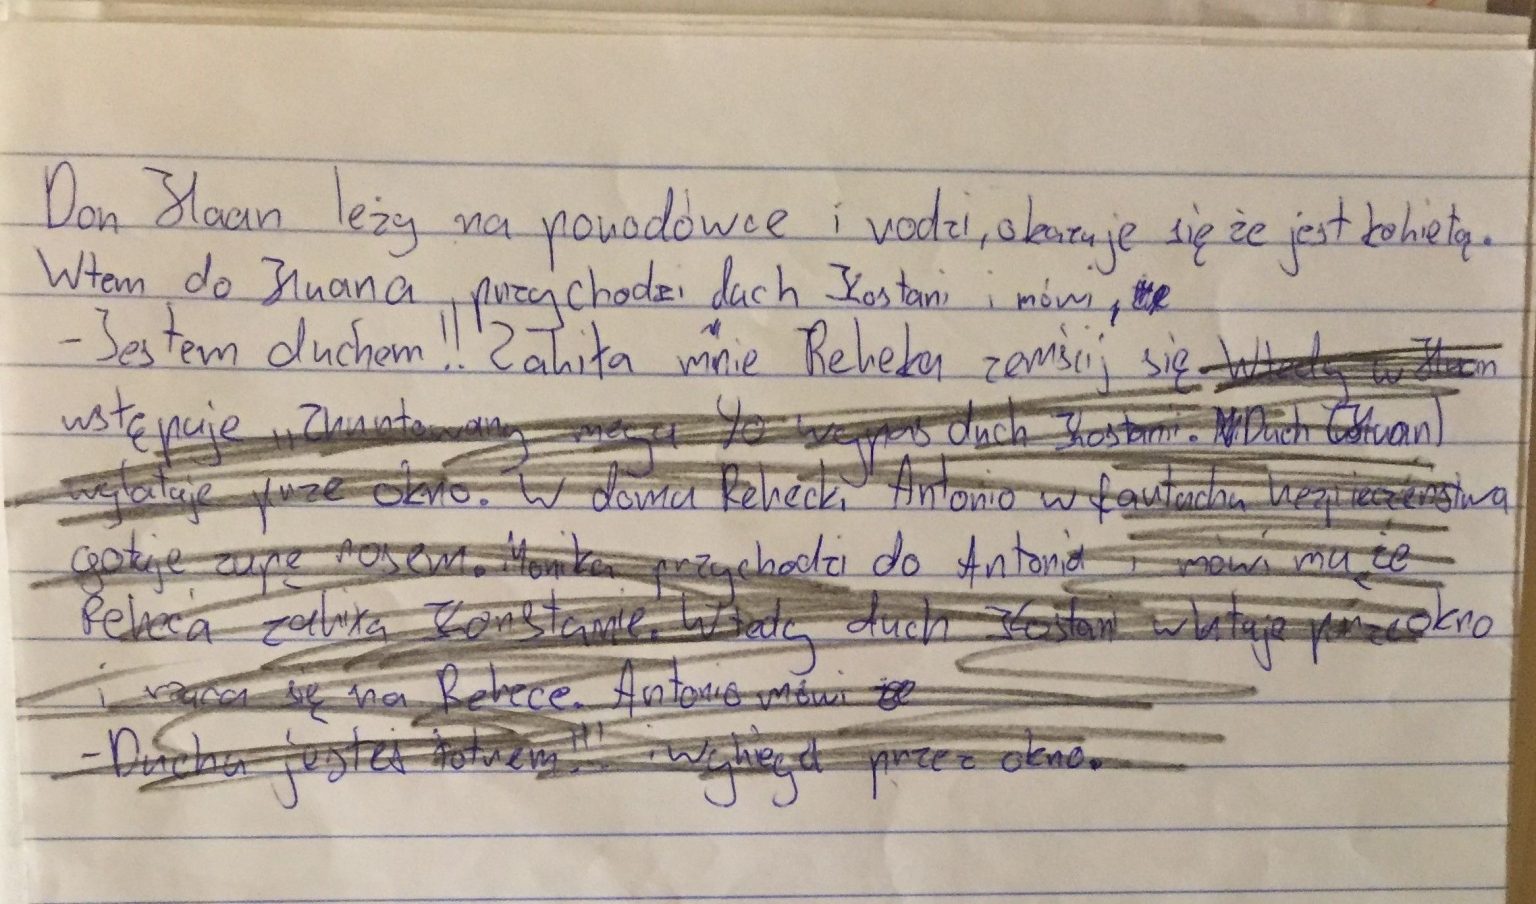 Don Huan leży na porodówce i rodzi, okazuje się że jest kobietą.
Wtem do Huana, przychodzi duch Kostani i mówi,
-Jestem duchem!! Zabiła mnie Rebeka zemścij się Wtedy w Huan
wstępuje duch Kostani. Duch (Huan)
wylatuje prze okno. W domu Rebecki Antonio w fartuchu bezpieczeństwa
gotuje zupę rosem. Monika przychodzi do Antonia i mówi mu że
Rebeca zabiła Konstanie. Wtedy duch Kostani wlatuje przez okno
i rzuca się na Rebece. Antonio mówi
-Ducha jesteś łotrem!!! i wybiega przez okno.